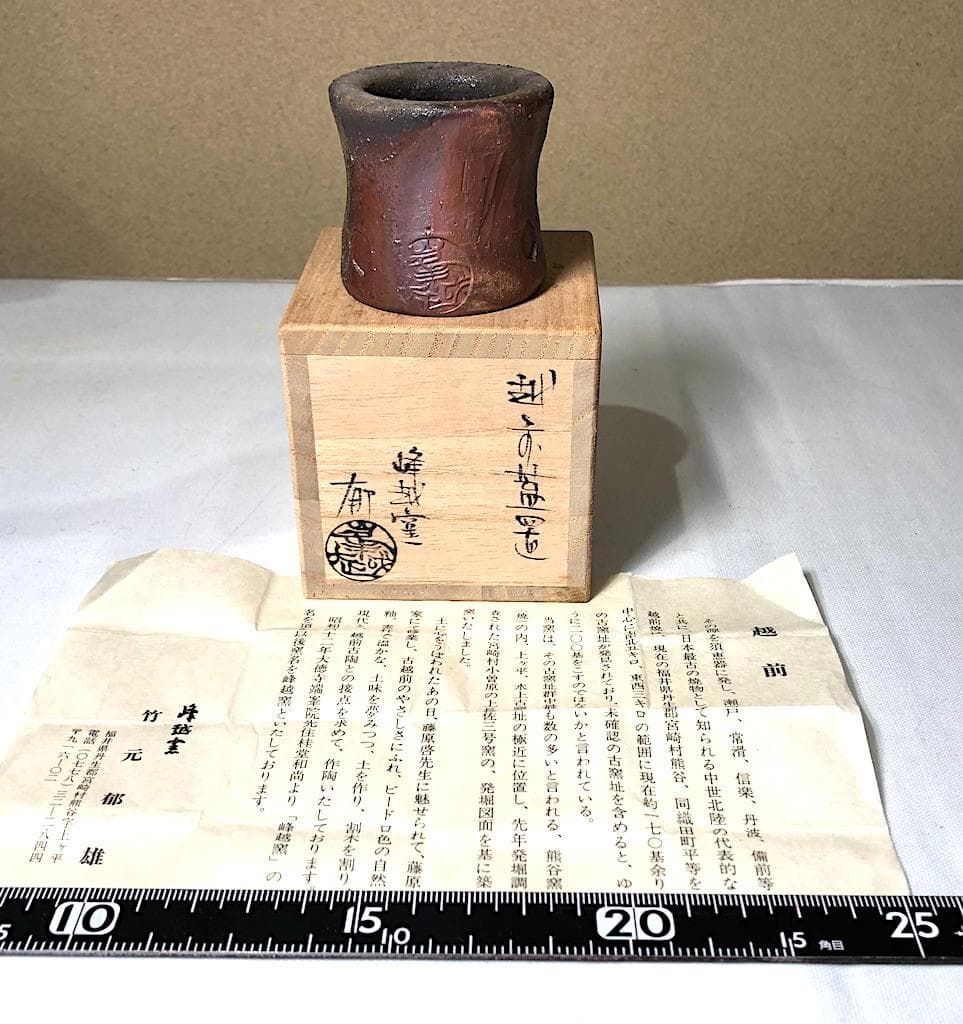 越前蓋置
峰越窯
郁
越前
その源を須恵器に発し、瀬戸、常滑、信楽、丹波、備前等
と共に日本最古の焼物として知られる中世北陸の代表的な
越前焼。現在の福井県丹生郡宮崎村熊谷、同織田町平等を
中心に南北五キロ、東西三キロの範囲に現在約一七〇基余り
の古窯址が発見されており、未確認の古窯址を含めると、ゆ
うに二〇〇基をこすのではないかと言われている。
当窯は、その古窯址群中最も数の多いと言われる、熊谷窯
焼の内、上ヶ平、水上古址の極近に位置し、先年発堀調
査された宮崎村小曽原の上長佐三号窯の、発堀図面を基に築
窯いたしました。
土に心をうばわれたあの日、藤原啓先生に魅せられて、藤原
家にて修業し、古越前のやさしさにふれ、ビードロ色の自然
釉、素朴で温かな、土味を夢みつつ、土を作り、割木を割り、
現代と越前古陶との接点を求めて、作陶いたしております。
昭和五十二年大徳寺端峯院先住桂堂和尚より「峰越窯」の
名を頂き以後窯名を峰越窯といたしております。
峰越窯
竹元郁雄
福井県丹生郡宮崎村熊谷字上ヶ平
電話(〇七七八)三二-二八四四
〒九一六-〇二
10
15
20
25
5
10
15
角目